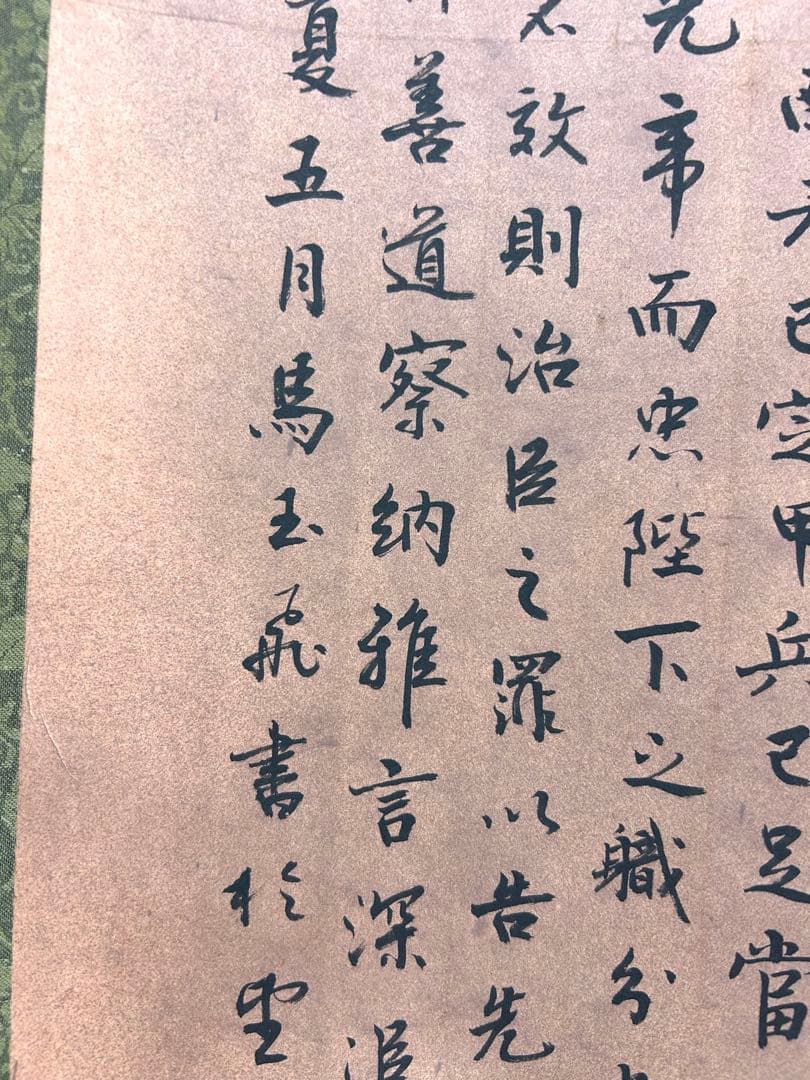 南方已定甲兵已足當
先帝而忠陛下之職分
不效則治臣之罪以告先
善道察納雅言深追
夏五月馬玉飛書於雲